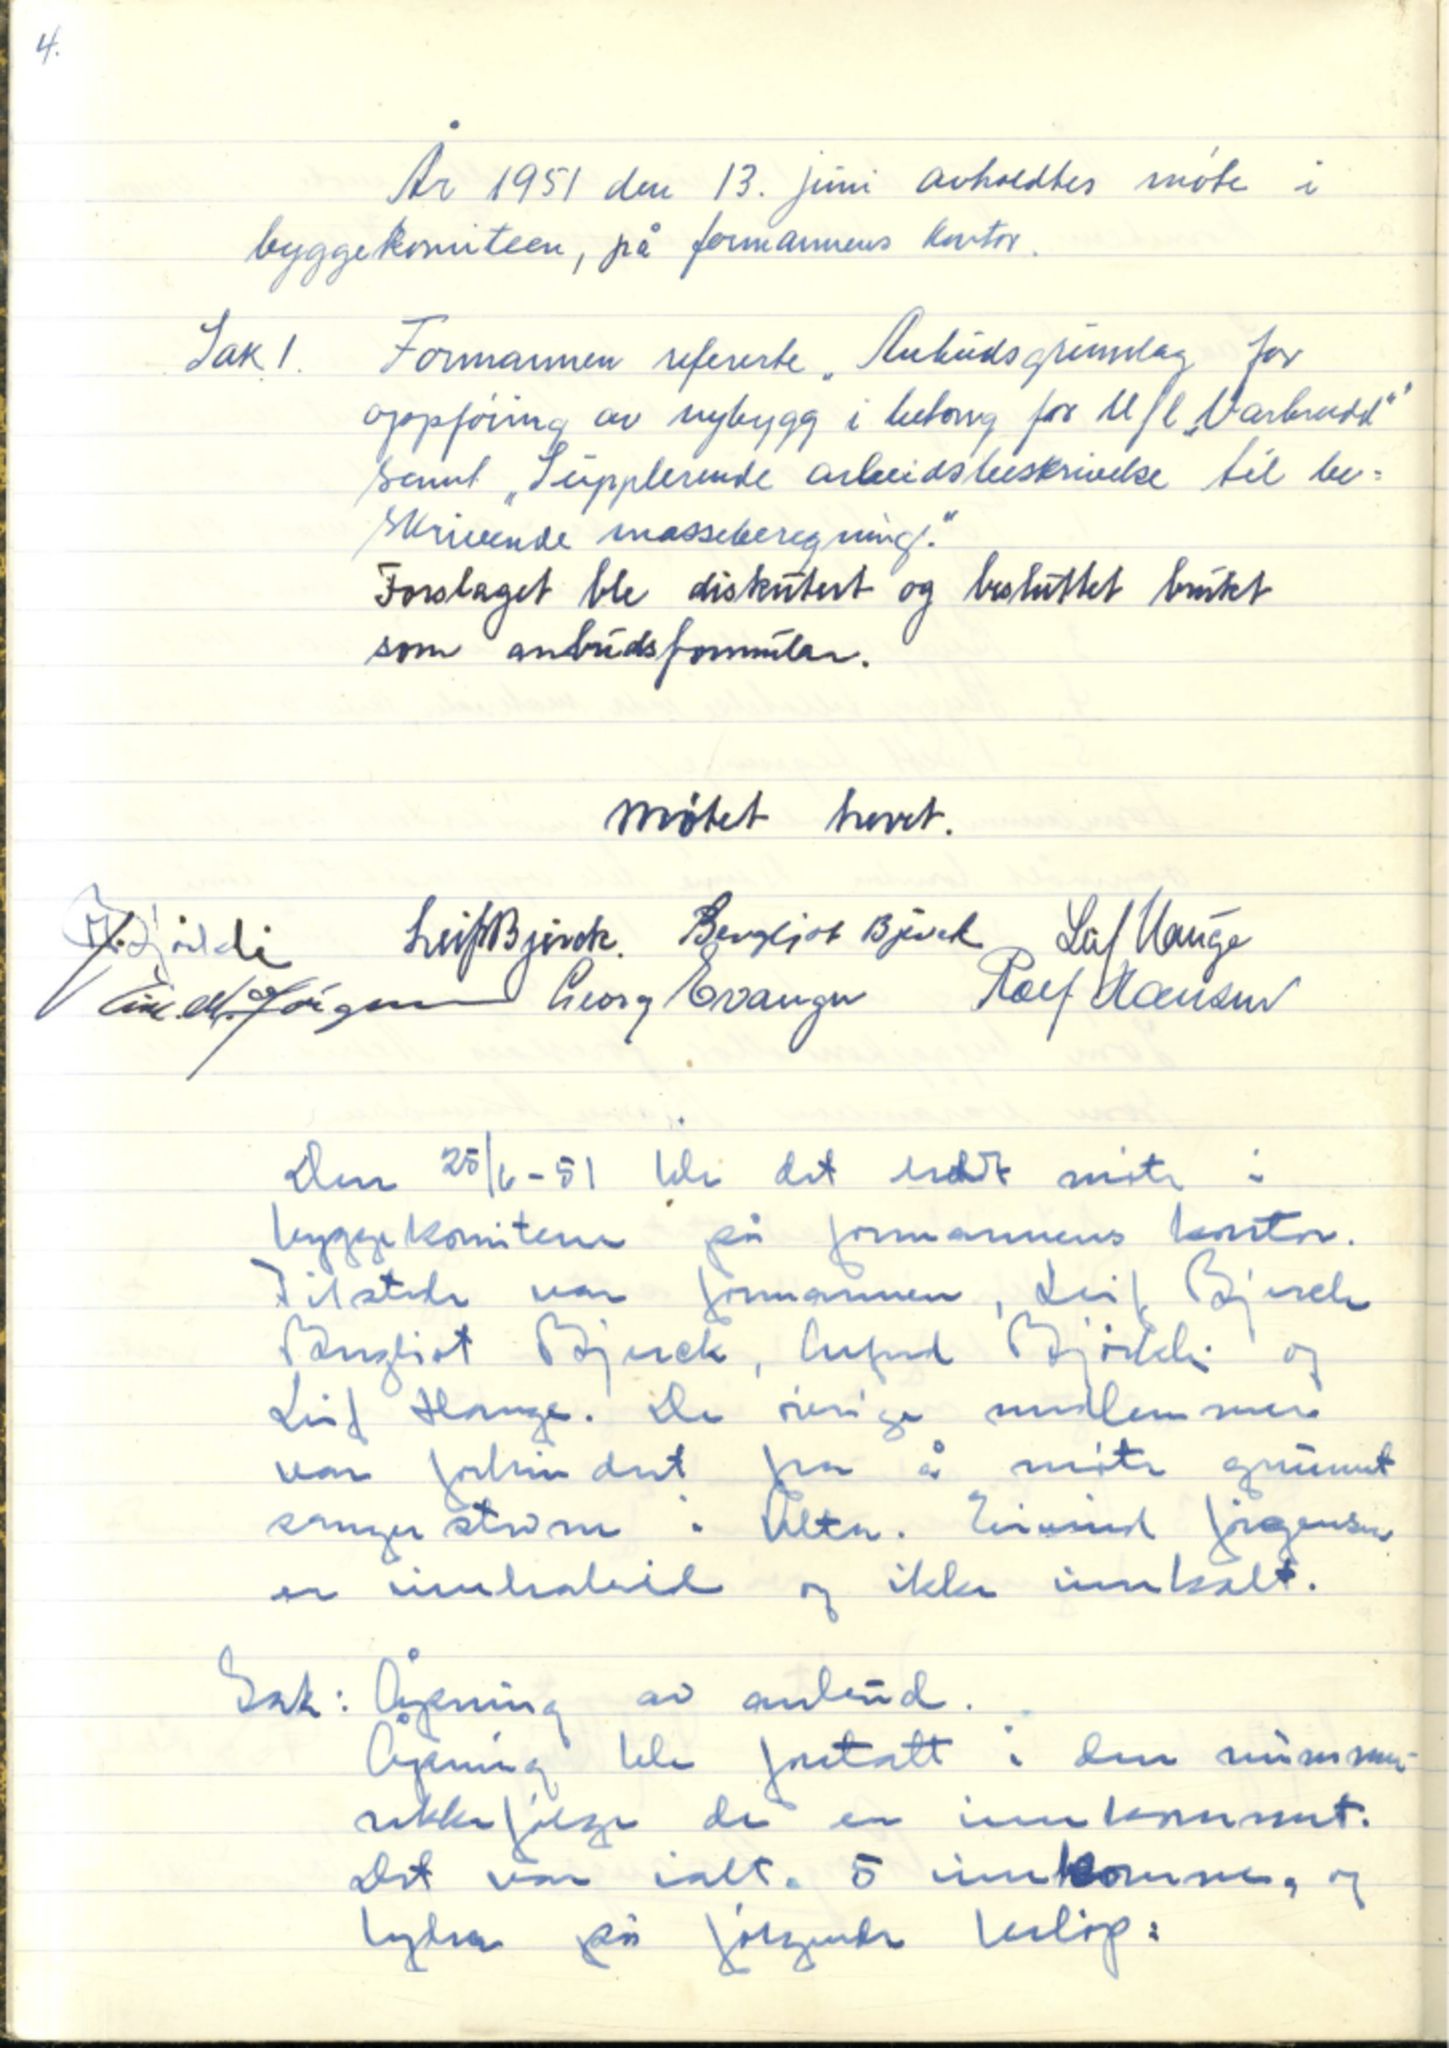 4.
År 1951 den 13. juni avholdtes møte i
byggekomiteen, på formannens kontor.
Sak 1. Formannen refererte „Anbudsgrunnlag for
oppføring av nybygg i betong for U/l „Varbrudd“
samt „Supplerende arbeidsbeskrivelse til be=
skrivende masseberegning.“
Forslaget ble diskutert og besluttet brukt
som anbudsformular.
Møtet hevet.
Leif Bjerck. Bergljot Bjerck Leif Hauge
Georg Evanger Rolf Hansen
Den 25/6-51 ble det holdt møte i
byggekomiteen på formannens kontor.
Tilstede var formannen, Leif Bjerck
Bergliot Bjerck, Bjørkli og
Leif Hauge. De øvrige medlemmer
var forhindret fra å møte grunnet
sangerstevne i Alta. Eivind Jørgensen
er og ikke innkalt.
Sak: Åpning av anbud.
Åpning ble foretatt i den nummer-
rekkefølge de er innkommet.
Det var ialt. 5 innkomne, og
lyder på følgende beløp: